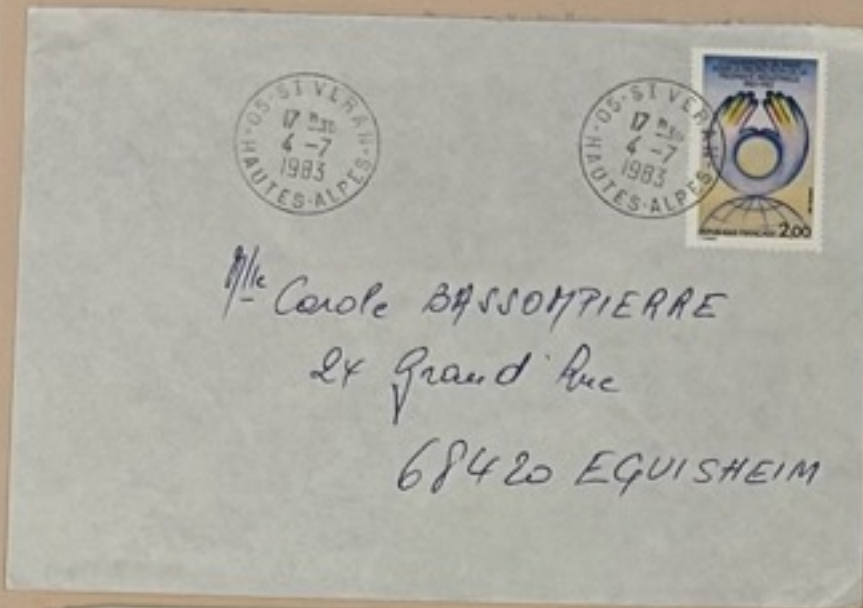 05-ST VERAN-
17 H 30
4 -7
1983
HAUTES-ALPES
05-ST VERAN-
17 H 30
4 -7
1983
HAUTES-ALPES
1883-1983
REPUBLIQUE FRANÇAISE 2,00
Mlle Carole BASSOMPIERRE
24 Grand'Rue
68420 EGUISHEIM